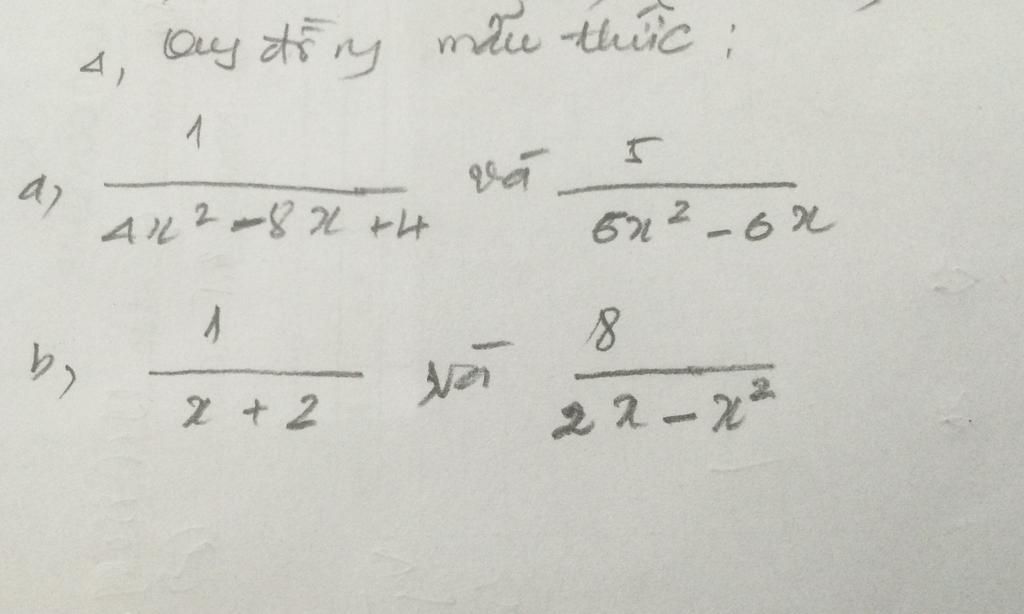 1, Quy đồng mẫu thức :
a, 1 / (4x² - 8x + 4) và 5 / (6x² - 6x)
b, 1 / (x + 2) và 8 / (2x - x²)